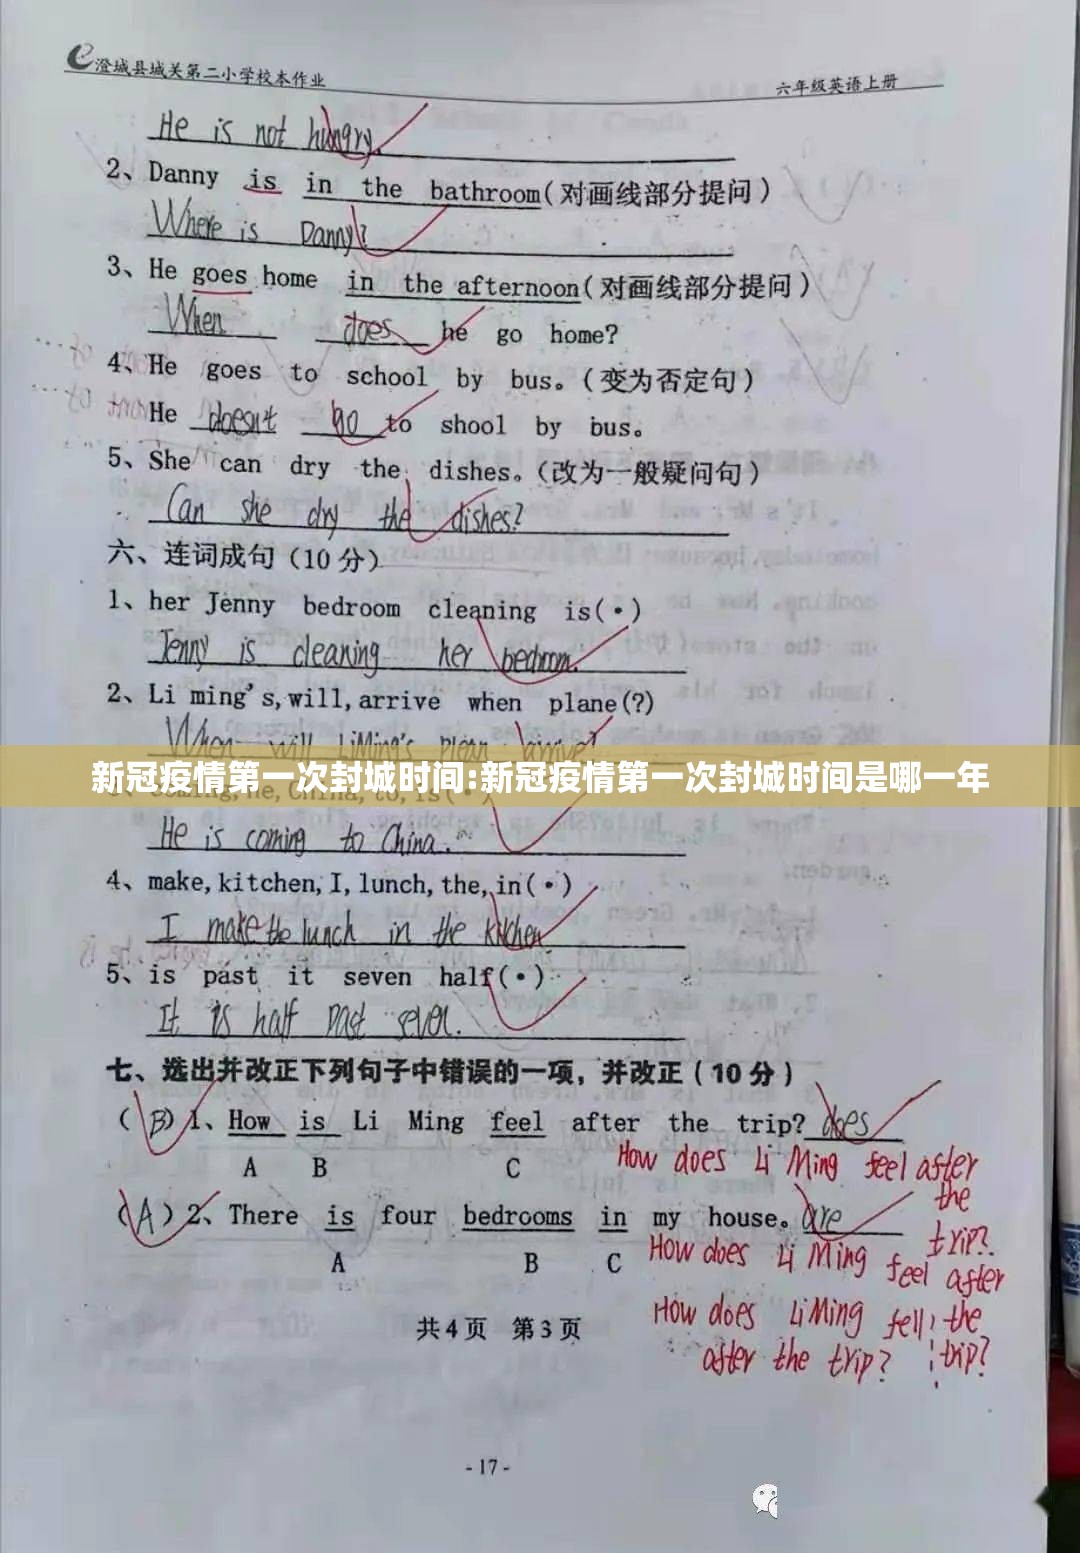 澄城县城关第二小学校本作业
六年级英语上册
He is not hungry.
2、Danny is in the bathroom(对画线部分提问)
Where is Danny?
3、He goes home in the afternoon(对画线部分提问)
When does he go home?
4、He goes to school by bus。(变为否定句)
He doesn't go to shool by bus。
5、She can dry the dishes。(改为一般疑问句)
Can she dry the dishes?
六、连词成句(10分)
1、her Jenny bedroom cleaning is(·)
Jenny is cleaning her bedroom.
2、Li ming's,will,arrive when plane(?)
When will LiMing's plean arrive?
新冠疫情第一次封城时间:新冠疫情第一次封城时间是哪一年
He is coming to China.
4、make,kitchen,I,lunch,the,in(·)
I make the lunch in the kitchen
5、is past it seven half(·)
It is half past seven.
七、选出并改正下列句子中错误的一项，并改正(10分)
(B)1、How is Li Ming feel after the trip? does
A B C
How does Li Ming feel after the trip?
(A)2、There is four bedrooms in my house。are
A B C
How does Li Ming feel after the trip?
How does LiMing fell after the trip?
共4页 第3页
-17-